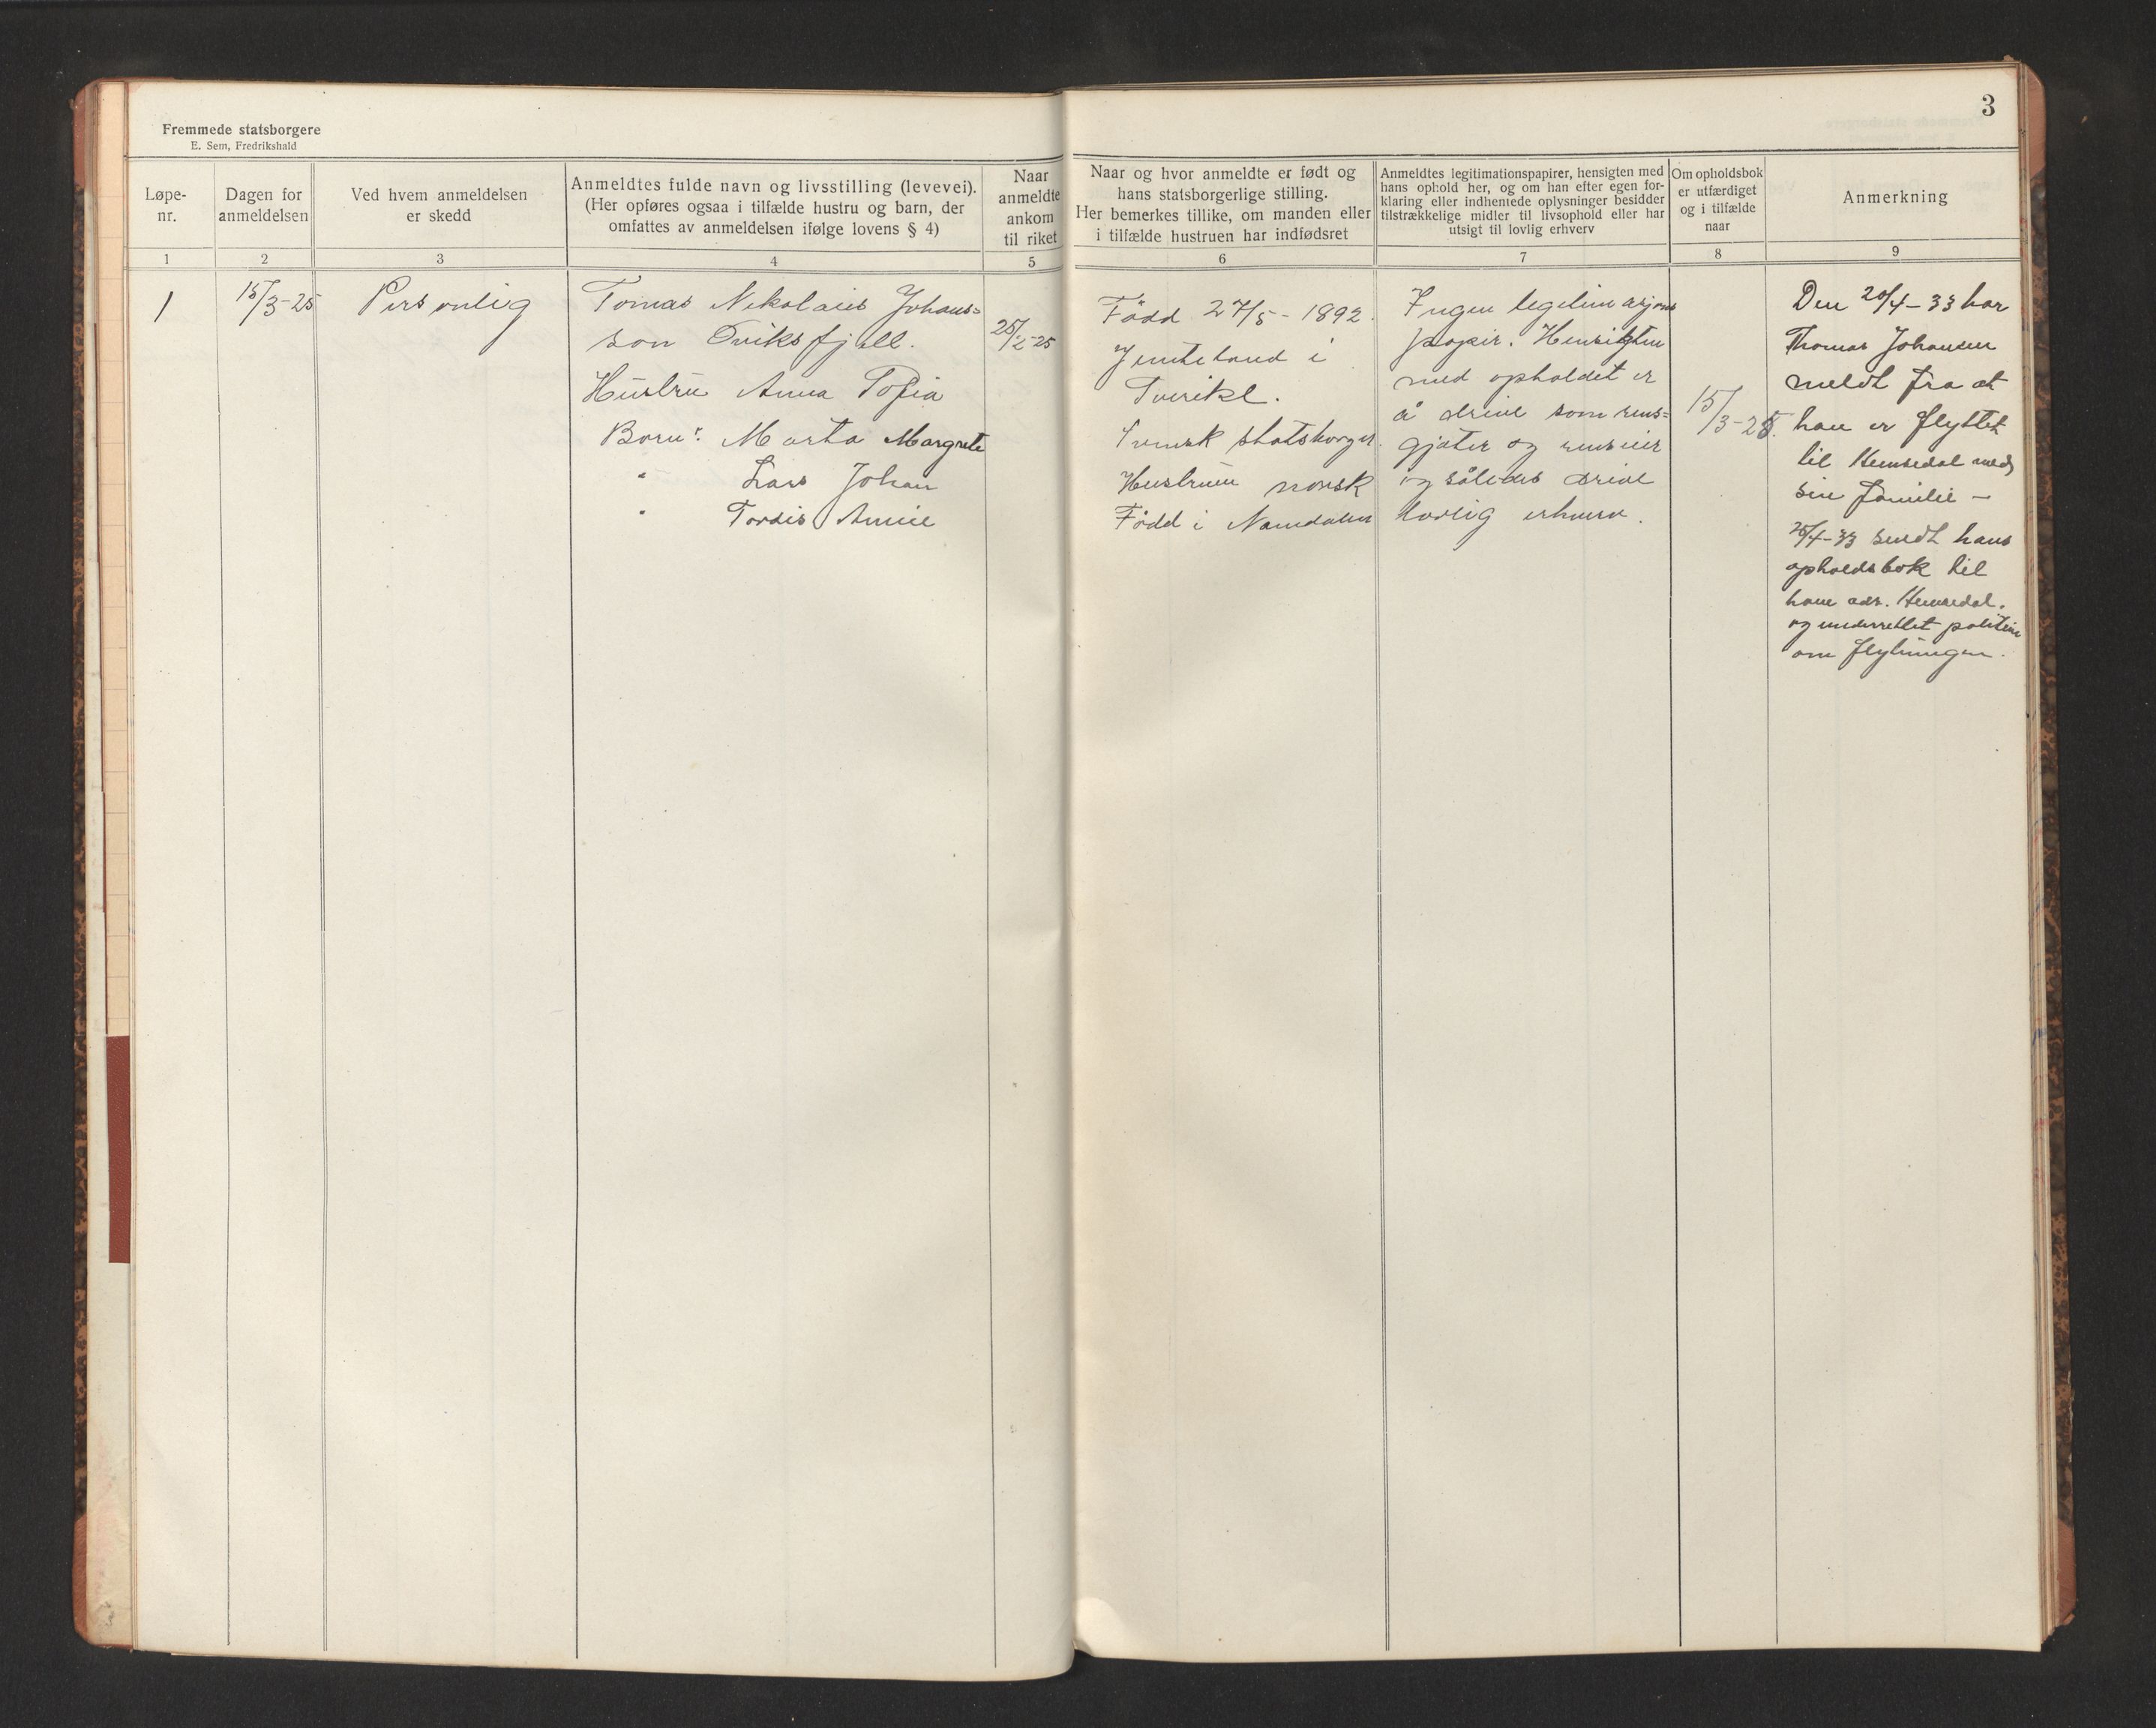 Fremmede statsborgere
E. Sem, Fredrikshald
3
Løpe-
nr.
Dagen for
anmeldelsen
Ved hvem anmeldelsen
er skedd
Anmeldtes fulde navn og livsstilling (levevei).
(Her opføres ogsaa i tilfælde hustru og barn, der
omfattes av anmeldelsen ifølge lovens § 4)
Naar
anmeldte
ankom
til riket
Naar og hvor anmeldte er født og
hans statsborgerlige stilling.
Her bemerkes tillike, om manden eller
i tilfælde hustruen har indfødsret
Anmeldtes legitimationspapirer, hensigten med
hans ophold her, og om han efter egen for-
klaring eller indhentede oplysninger besidder
tilstrækkelige midler til livsophold eller har
utsigt til lovlig erhverv
Om opholdsbok
er utfærdiget
og i tilfælde
naar
Anmerkning
1
2
3
4
5
6
7
8
9
1
15/3-25
Personlig
Tomas Nikolaus Johans=
son Oviksfjell.
Hustru Anna Sofia
Born: Marta Margrete
" Lars Johan
" Tordis Annie
25/2-25
Född 27/5-1892.
Jemteland i
Sverike.
Svensk statsborger.
Hustruen norsk
Född i Namdalen
Ingen legitimasjons
papir. Hensikten
med opholdet er
å drive som rens=
gjæter og renseier
og således drive
lovlig erhverv.
15/3-25.
Den 20/4-33 har
Thomas Johansen
meldt fra at
han er flyttet
til Hemsedal med
sin familie -
25/4-33 sendt hans
opholdsbok til
ham adr. Hemsedal.
og underrettet politiet
om flytningen.